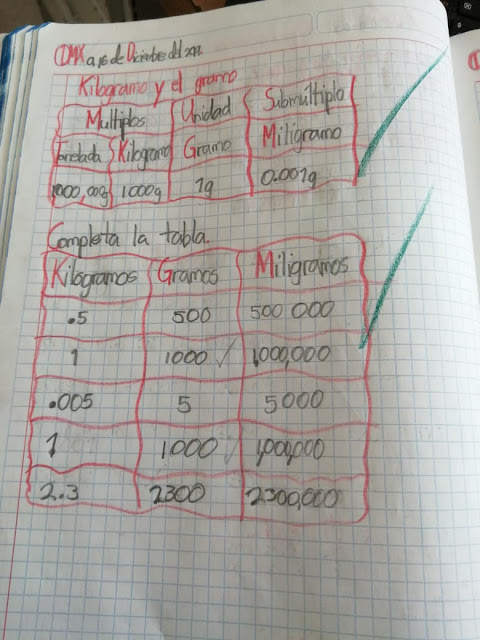 CDMX a 16 de Diciembre del 201
Kilogramo y el gramo
Multiplos Unidad Submúltiplo
Tonelada Kilogramo Gramo Miligramo
1000,000g 1000g 1g 0.001g
Completa la tabla.
Kilogramos Gramos Miligramos
.5 500 500 000
1 1000 1,000,000
.005 5 5000
1 1000 1,000,000
2.3 2300 2300,000